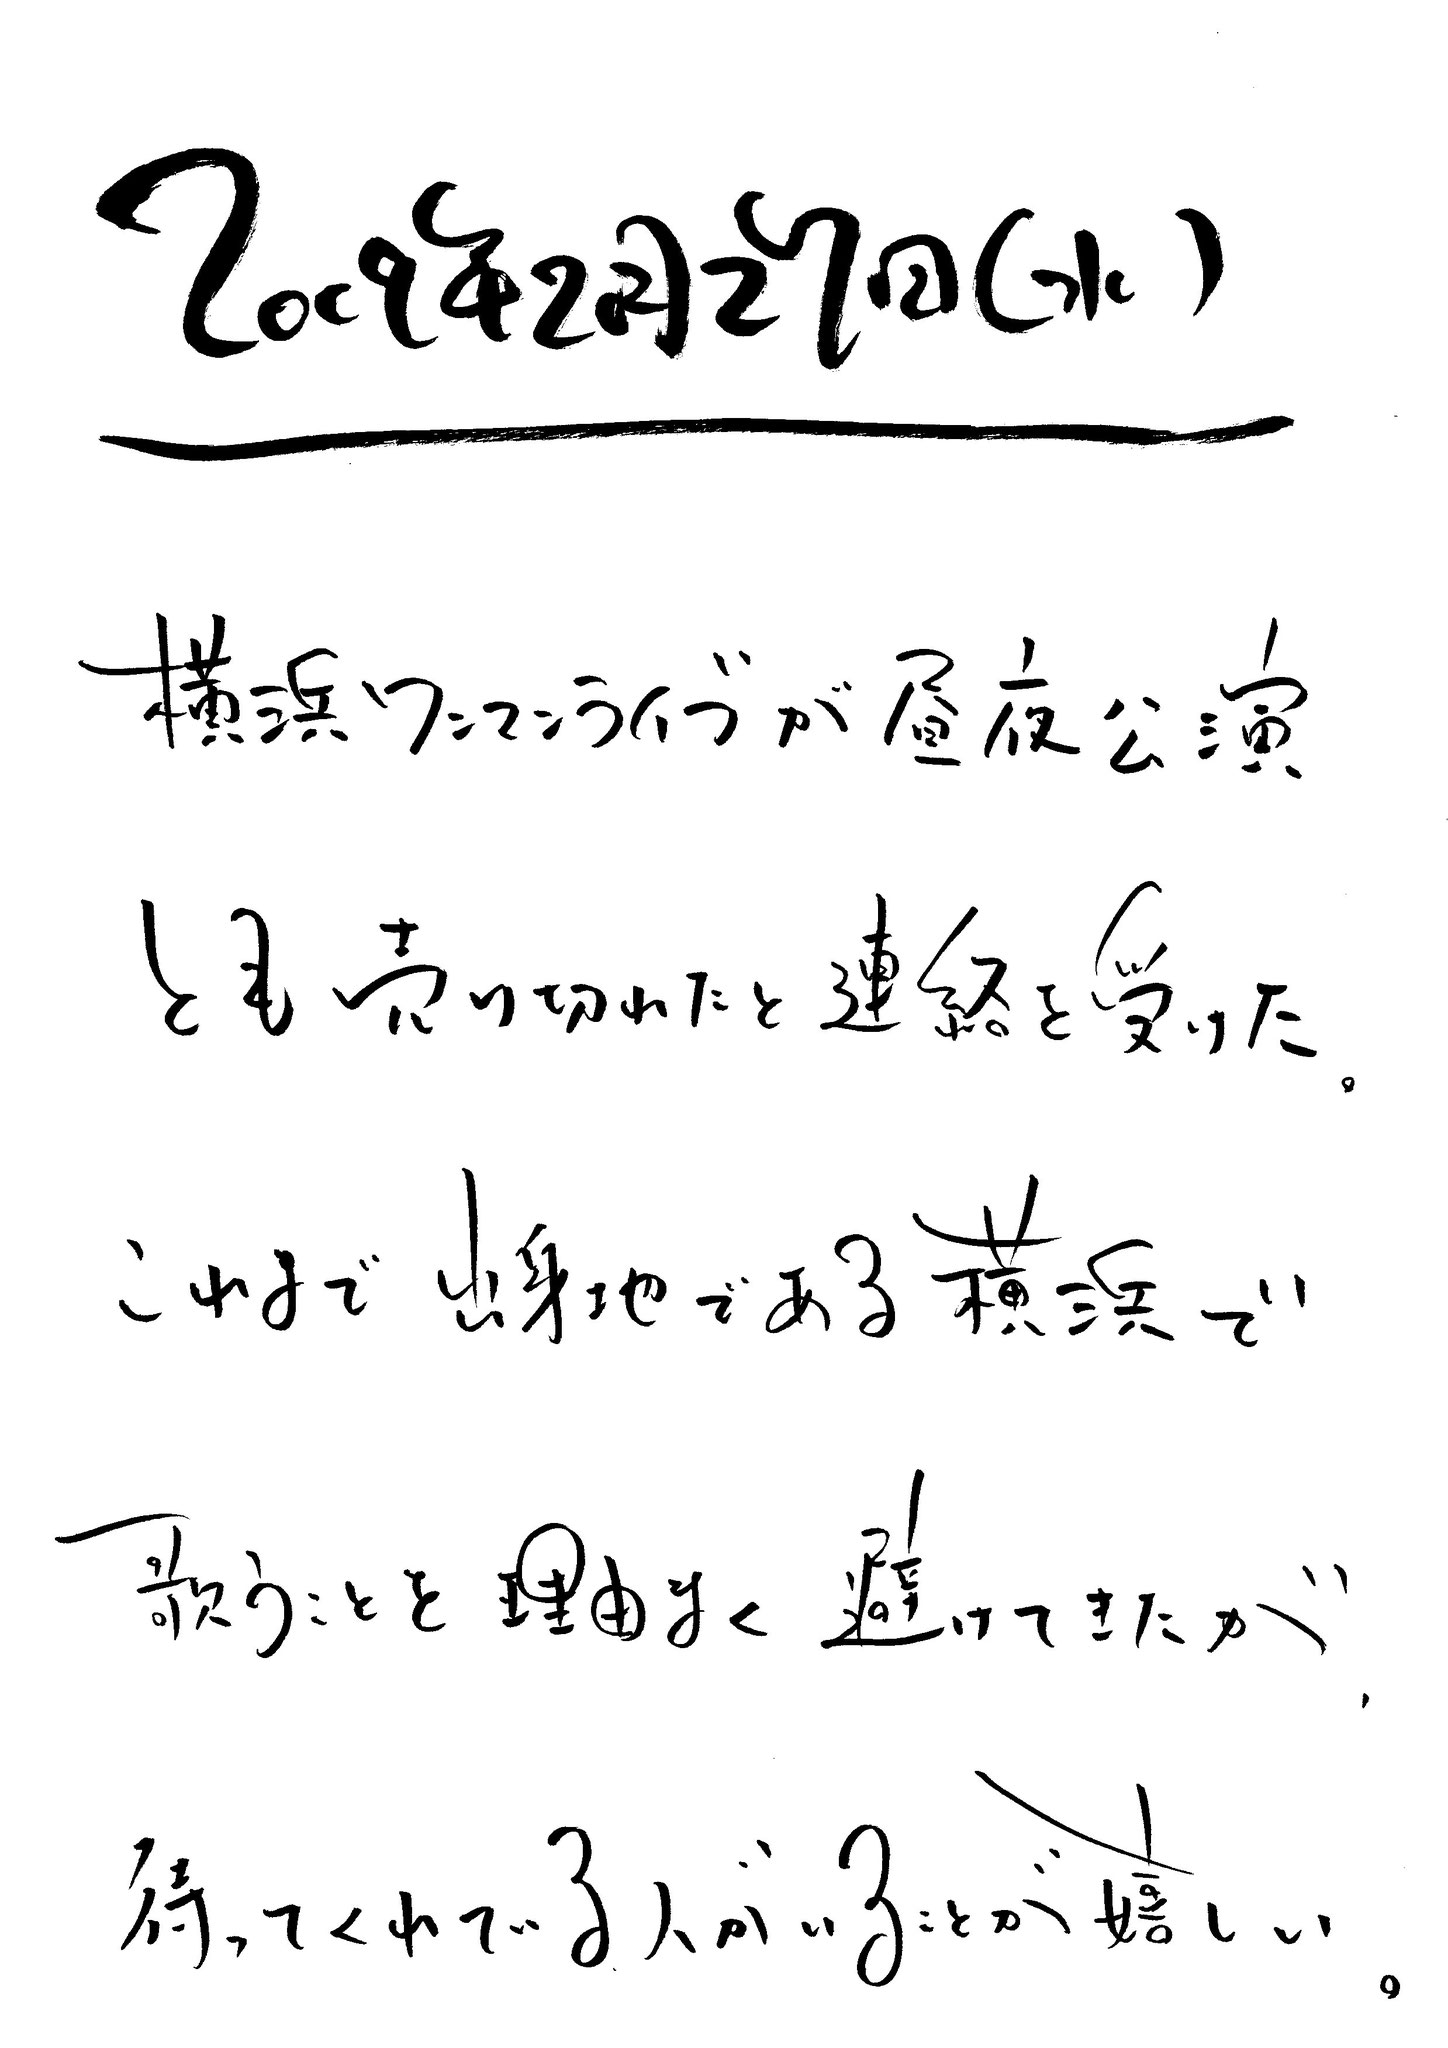 2019年2月27日(水)
横浜ワンマンライブが昼夜公演
とも売り切れたと連絡を受けた。
これまで出身地である横浜で
歌うことを理由なく避けてきたが、
待ってくれている人がいることが嬉しい。